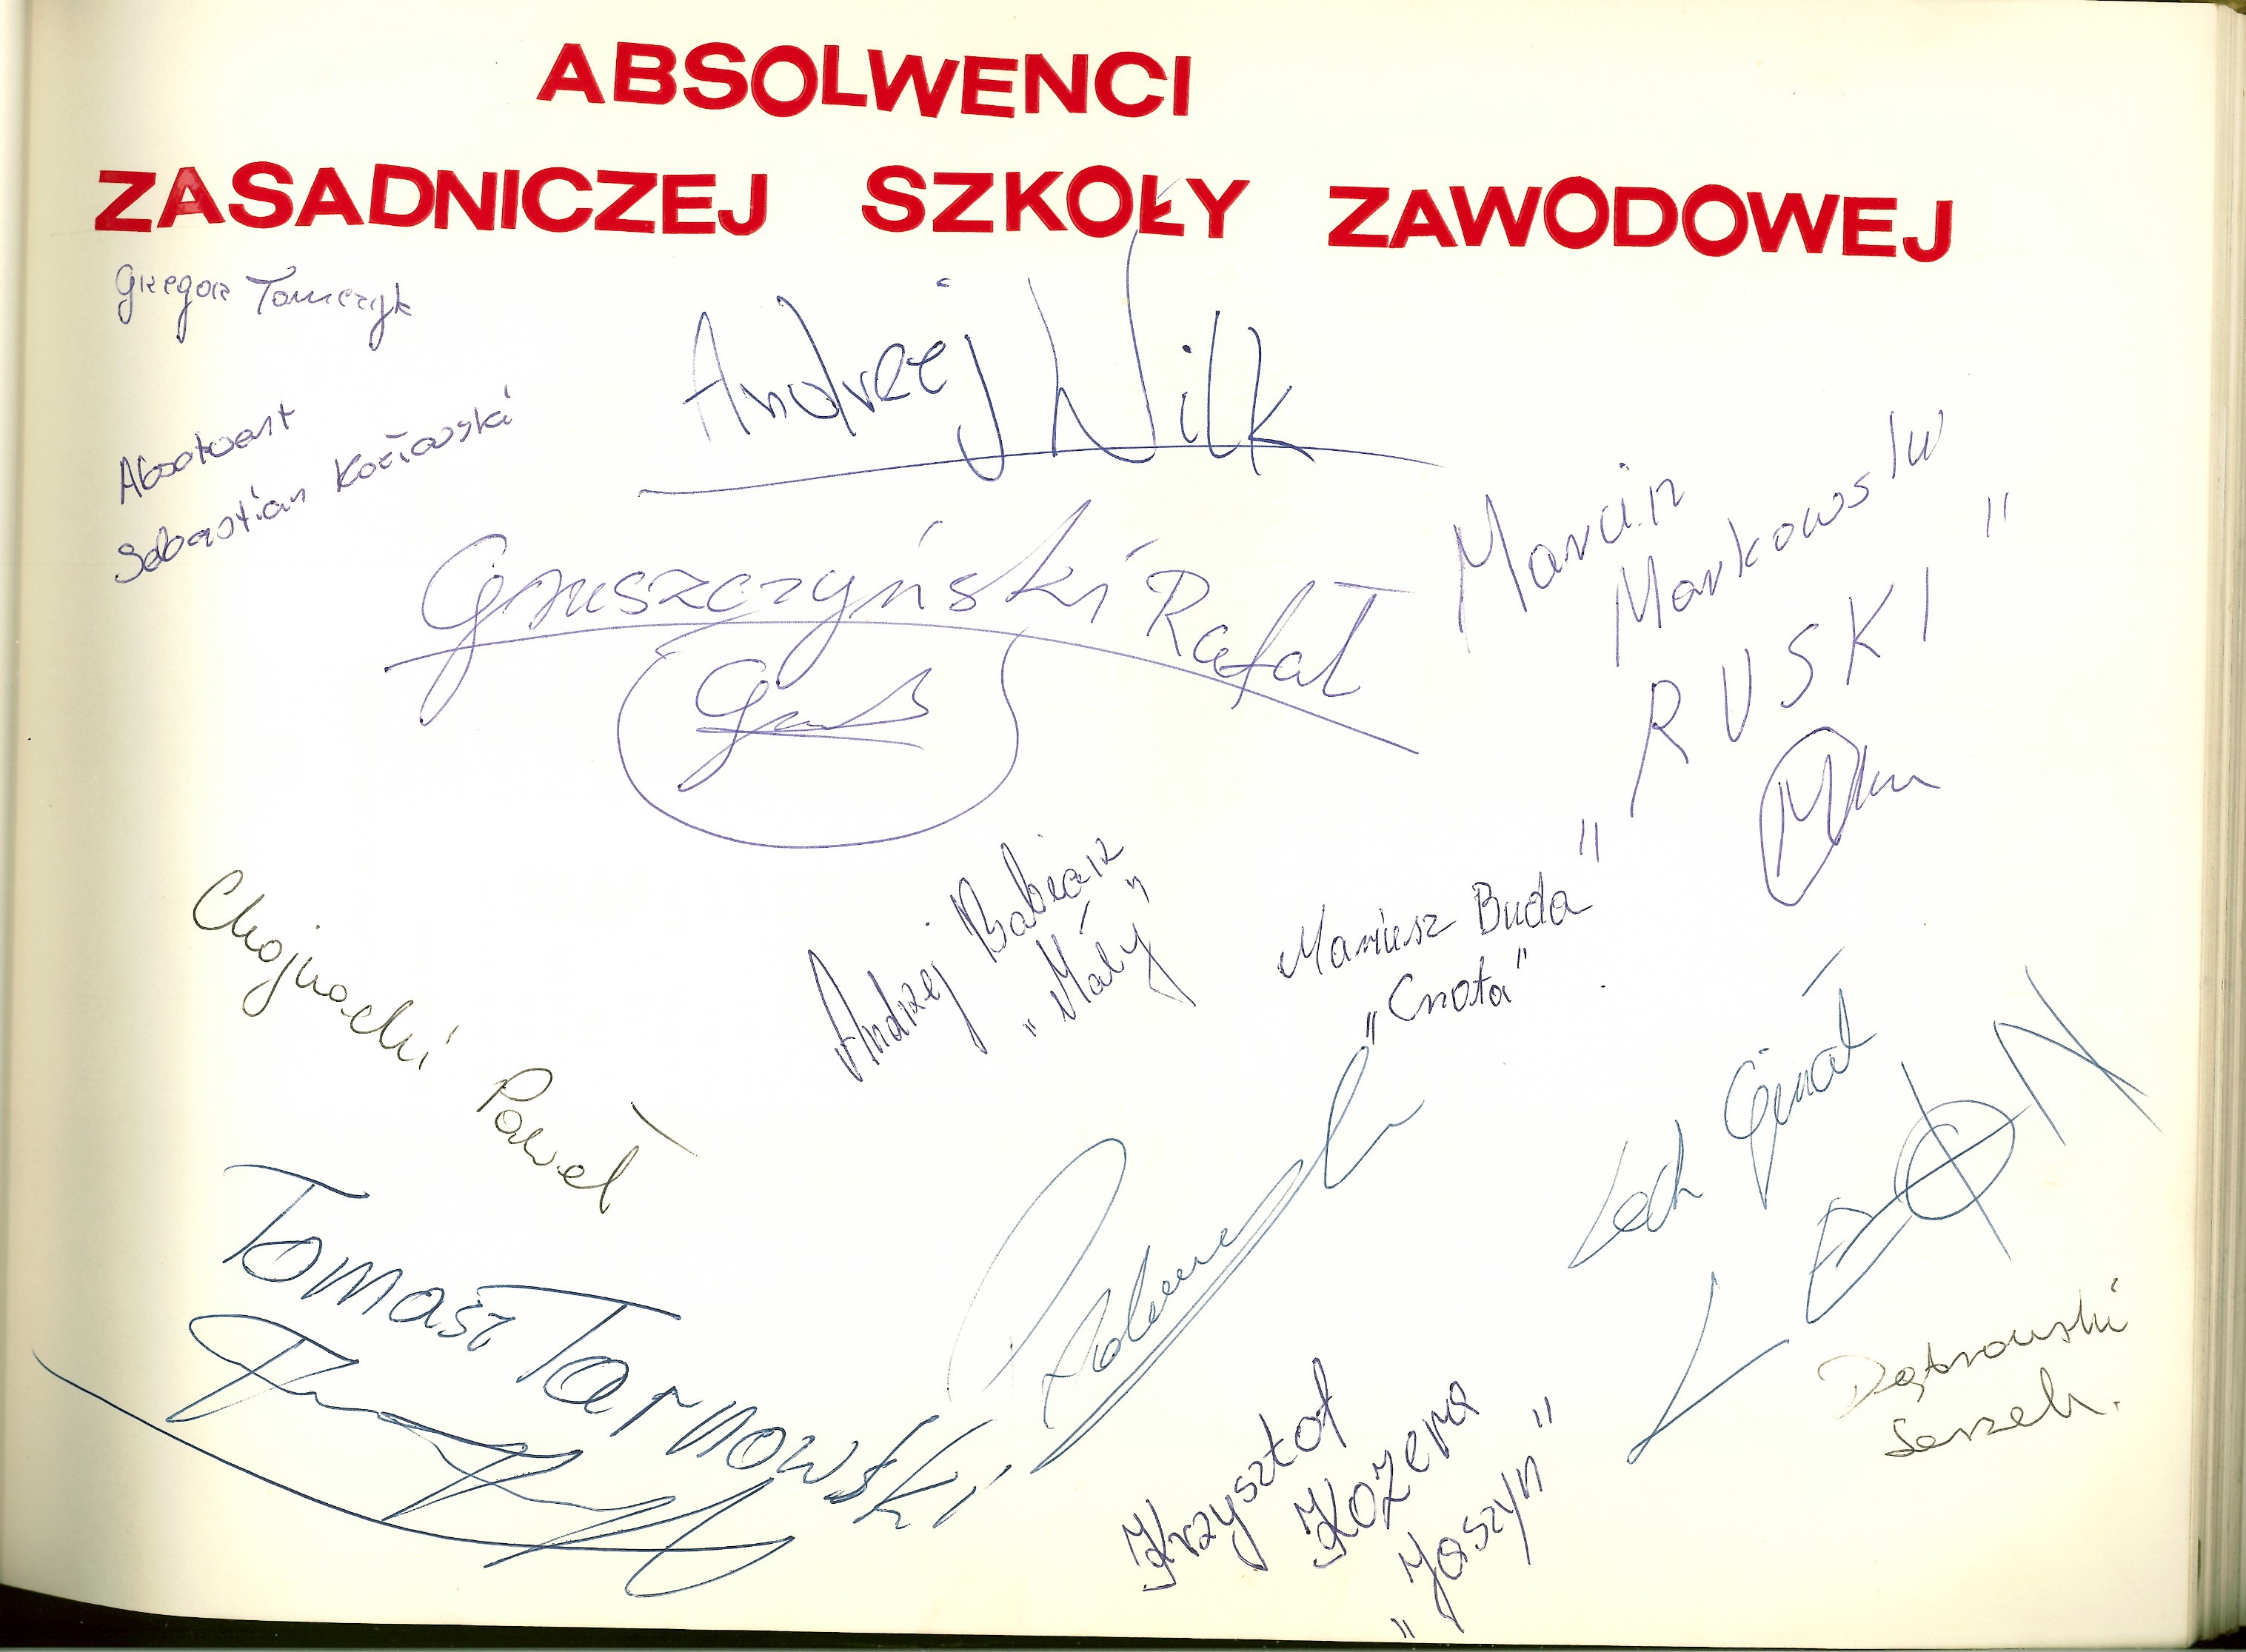 ABSOLWENCI
ZASADNICZEJ SZKOŁY ZAWODOWEJ
Grzegorz Tomczyk
Andrzej Wilk
Absolwent
Sebastian Koziowski
Gruszczyński Rafał
Marcin
Markowski
"RUSKI"
Chojnacki Paweł
Andrzej Babiarz
"Mały"
Mariusz Buda
"Cnota"
Lech Ginał
LEON
Tomasz Tarnowski
Krzysztof
Kozera
"Jaszyn"
Dąbrowski
Leszek.